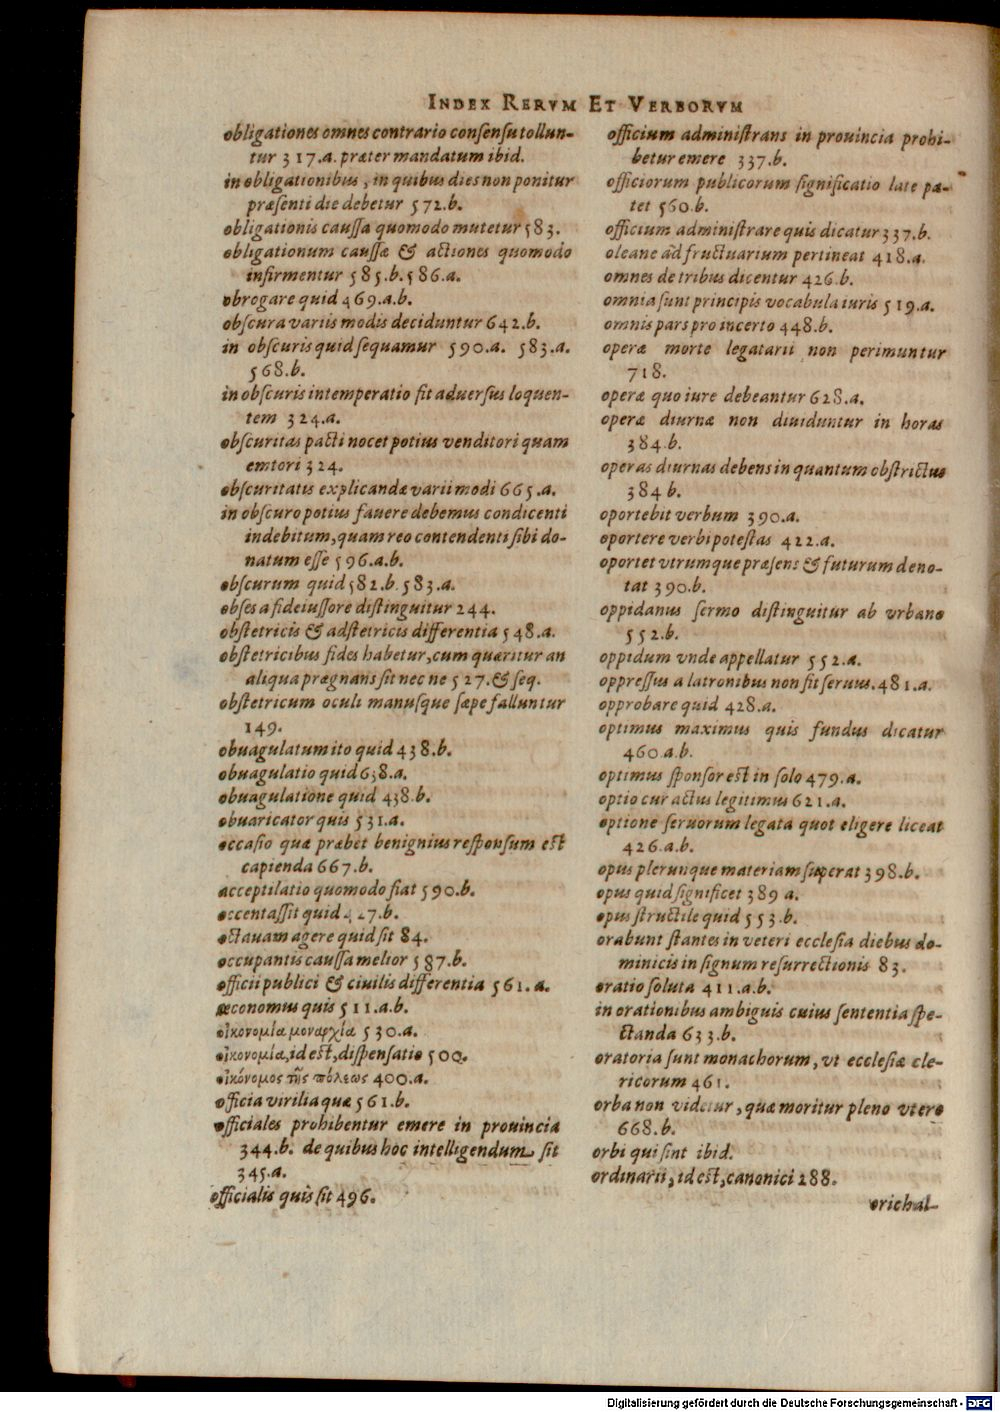 INDEX RERVM ET VERBORVM
obligationes omnes contrario consensu tollun-
tur 317.a. præter mandatum ibid.
in obligationibus, in quibus dies non ponitur
præsenti die debetur 572.b.
obligationis caussa quomodo mutetur 583.
obligationum caussæ & actiones quomodo
infirmentur 585.b. 586.a.
obrogare quid 469.a.b.
obscura variis modis deciduntur 642.b.
in obscuris quid sequamur 590.a. 583.a.
568.b.
in obscuris intemperatio fit aduersus loquen-
tem 324.a.
obscuritas pacti nocet potius venditori quam
emtori 324.
obscuritatis explicandæ varii modi 665.a.
in obscuro potius fauere debemus condicenti
indebitum, quam reo contendenti sibi do-
natum esse 596.a.b.
obscurum quid 582.b. 583.a.
obses a fideiussore distinguitur 244.
obstetricis & adstetricis differentia 548.a.
obstetricibus fides habetur, cum quæritur an
aliqua prægnans sit nec ne 527. & seq.
obstetricum oculi manusque sæpe falluntur
149.
obuagulatum ito quid 438.b.
obuagulatio quid 638.a.
obuagulatione quid 438.b.
obuaricator quis 531.a.
occasio quæ præbet benignius responsum est
capienda 667.b.
acceptilatio quomodo fiat 590.b.
occentassit quid 427.b.
octauam agere quid sit 84.
occupantis caussa melior 587.b.
officii publici & ciuilis differentia 561.a.
œconomus quis 511.a.b.
οἰκονομία μοναρχία 530.a.
οἰκονομία, id est, dispensatio 500.
οἰκόνομος τῆς πόλεως 400.a.
officia virilia quæ 561.b.
officiales prohibentur emere in prouincia
344.b. de quibus hoc intelligendum sit
345.a.
officialis quis sit 496.
officium administrans in prouincia prohi-
betur emere 337.b.
officiorum publicorum significatio late pa-
tet 560.b.
officium administrare quis dicatur 337.b.
oleane ad fructuarium pertineat 418.a.
omnes de tribus dicentur 426.b.
omnia sunt principis vocabula iuris 519.a.
omnis pars pro incerto 448.b.
operæ morte legatarii non perimuntur
718.
operæ quo iure debeantur 628.a.
operæ diurnæ non diuiduntur in horas
384.b.
operas diurnas debens in quantum obstrictus
384 b.
oportebit verbum 390.a.
oportere verbi potestas 422.a.
oportet vtrumque præsens & futurum deno-
tat 390.b.
oppidanus sermo distinguitur ab vrbano
552.b.
oppidum vnde appellatur 552.a.
oppressus a latronibus non fit seruus. 481.a.
opprobare quid 428.a.
optimus maximus quis fundus dicatur
460.a.b.
optimus sponsor est in solo 479.a.
optio cur actus legitimus 621.a.
optione seruorum legata quot eligere liceat
426.a.b.
opus plerunque materiam superat 398.b.
opus quid significet 389 a.
opus structile quid 553.b.
orabunt stantes in veteri ecclesia diebus do-
minicis in signum resurrectionis 83.
oratio soluta 411.a.b.
in orationibus ambiguis cuius sententia spe-
ctanda 633.b.
oratoria sunt monachorum, vt ecclesiæ cle-
ricorum 461.
orba non videtur, quæ moritur pleno vtero
668.b.
orbi qui sint ibid.
ordinarii, id est, canonici 288.
orichal-
Digitalisierung gefördert durch die Deutsche Forschungsgemeinschaft - DFG